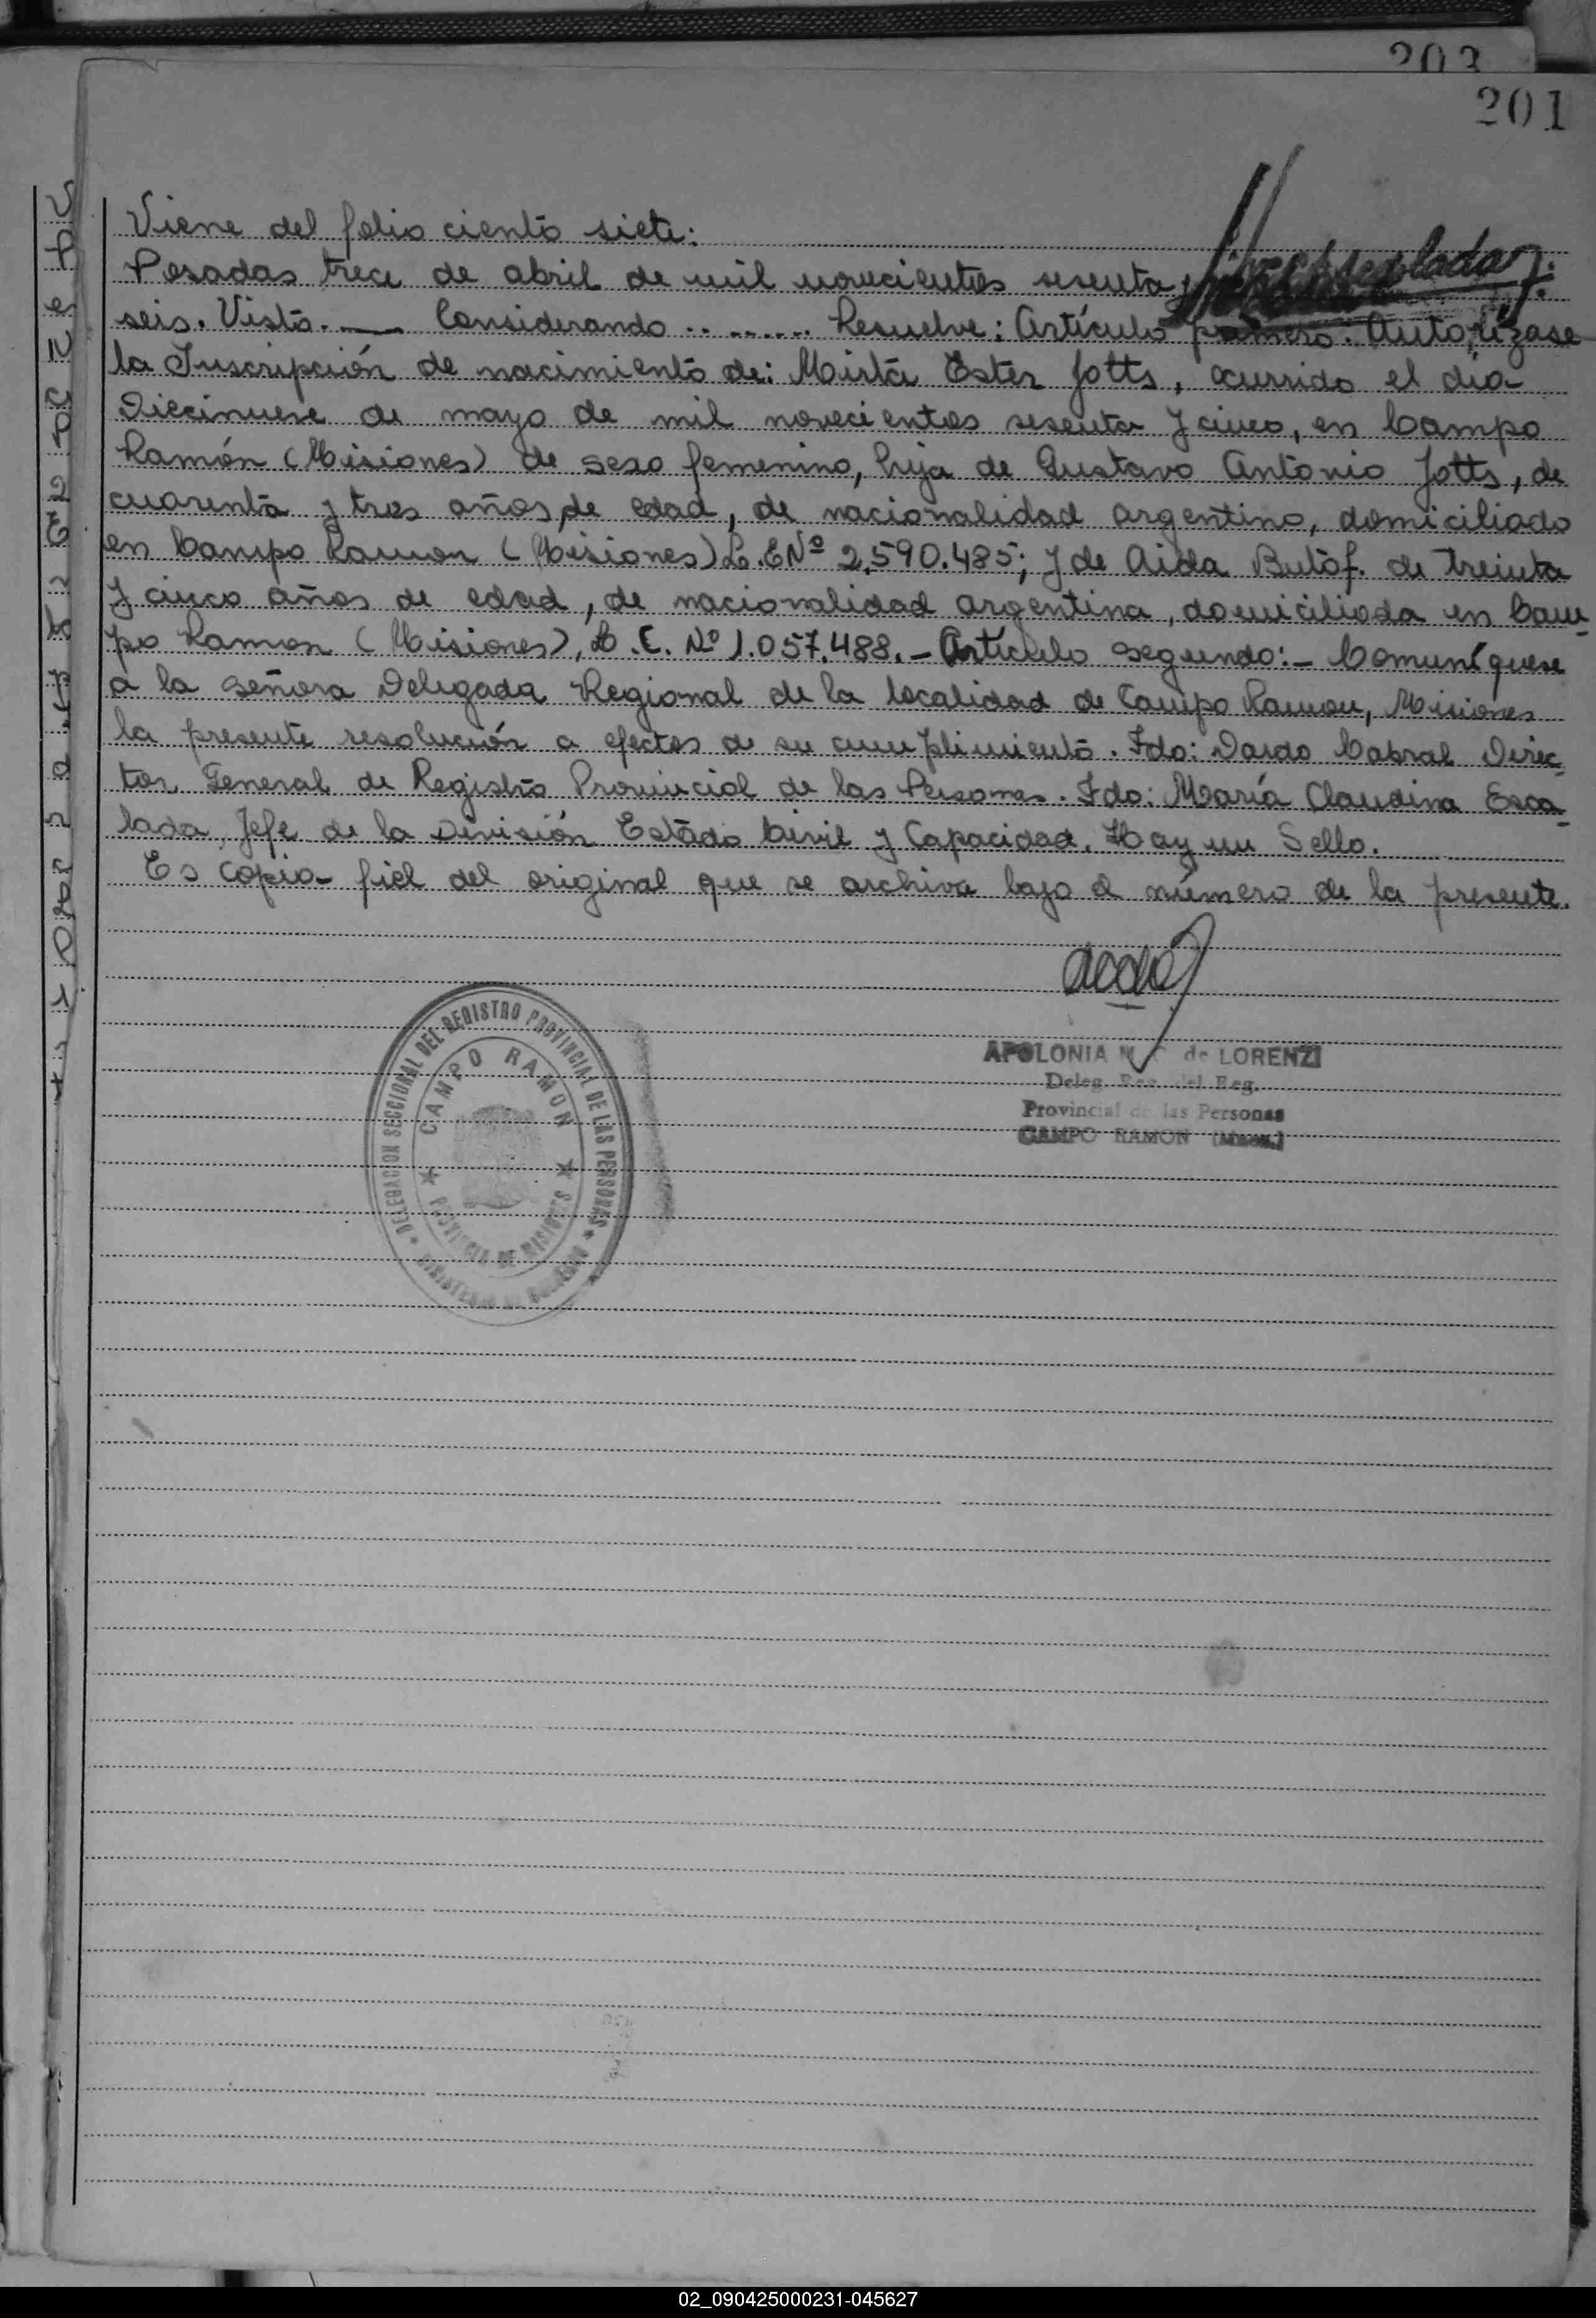 203
201
Viene del folio ciento siete:
Posadas trece de abril de mil novecientos sesenta y
seis. Visto. — Considerando ......... Resuelve: Artículo primero: Autorízase
la Inscripción de nacimiento de: Mirta Ester Jotts, ocurrido el dia
Diecinueve de mayo de mil novecientos sesenta y cinco, en Campo
Ramón (Misiones) de sexo femenino, hija de Gustavo Antonio Jotts, de
cuarenta y tres años de edad, de nacionalidad argentino, domiciliado
en Campo Ramon (Misiones) L.E Nº 2.590.485; y de Aida Butof. de treinta
y cinco años de edad, de nacionalidad argentina, domiciliada en Cam-
po Ramon (Misiones), L.C. Nº 1.057.488.- Artículo segundo:- Comuníquese
a la señora Delegada Regional de la localidad de Campo Ramon, Misiones
la presente resolución a efectos de su cumplimiento. Fdo: Dardo Cabral Direc-
tor General de Registro Provincial de las Personas. Fdo: María Claudina Esca-
lada, Jefe de la División Estado Civil y Capacidad. Hay un Sello.
Es copia fiel del original que se archiva bajo el número de la presente.
DELEGACION SECCIONAL DEL REGISTRO PROVINCIAL DE LAS PERSONAS
CAMPO RAMON
PROVINCIA DE MISIONES
MINISTERIO DE GOBIERNO
APOLONIA M. de LORENZI
Deleg. Reg. del Reg.
Provincial de las Personas
CAMPO RAMON (Mnes.)
02_090425000231-045627